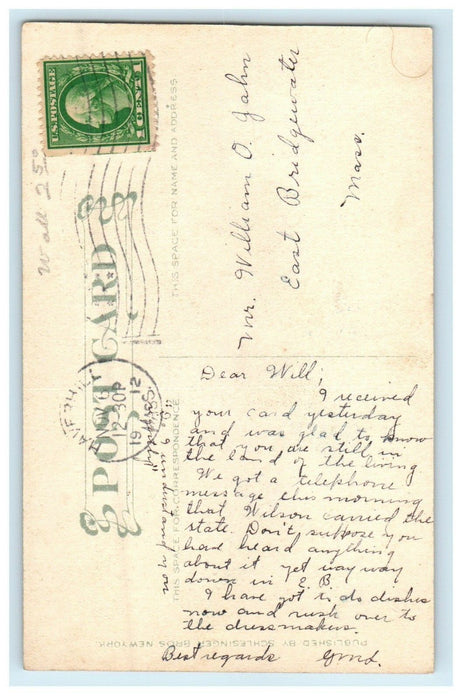 U.S. POSTAGE
1 CENT 1
W all 25¢
POST CARD
THIS SPACE FOR NAME AND ADDRESS
Mr. William O. Jahn
East Bridgewater
Mass.
12-30P
1912
MASS.
THIS SPACE FOR CORRESPONDENCE
Dear Will;
I received
your card yesterday
and was glad to know
that you are still in
the land of the living
We got a telephone
message this morning
that Wilson carried the
state. Don't suppose you
have heard anything
about it yet way way
down in E.B
I have got to do dishes
now and rush over to
the dressmakers.
Best regards
PUBLISHED BY SCHLESINGER BROS. NEW YORK